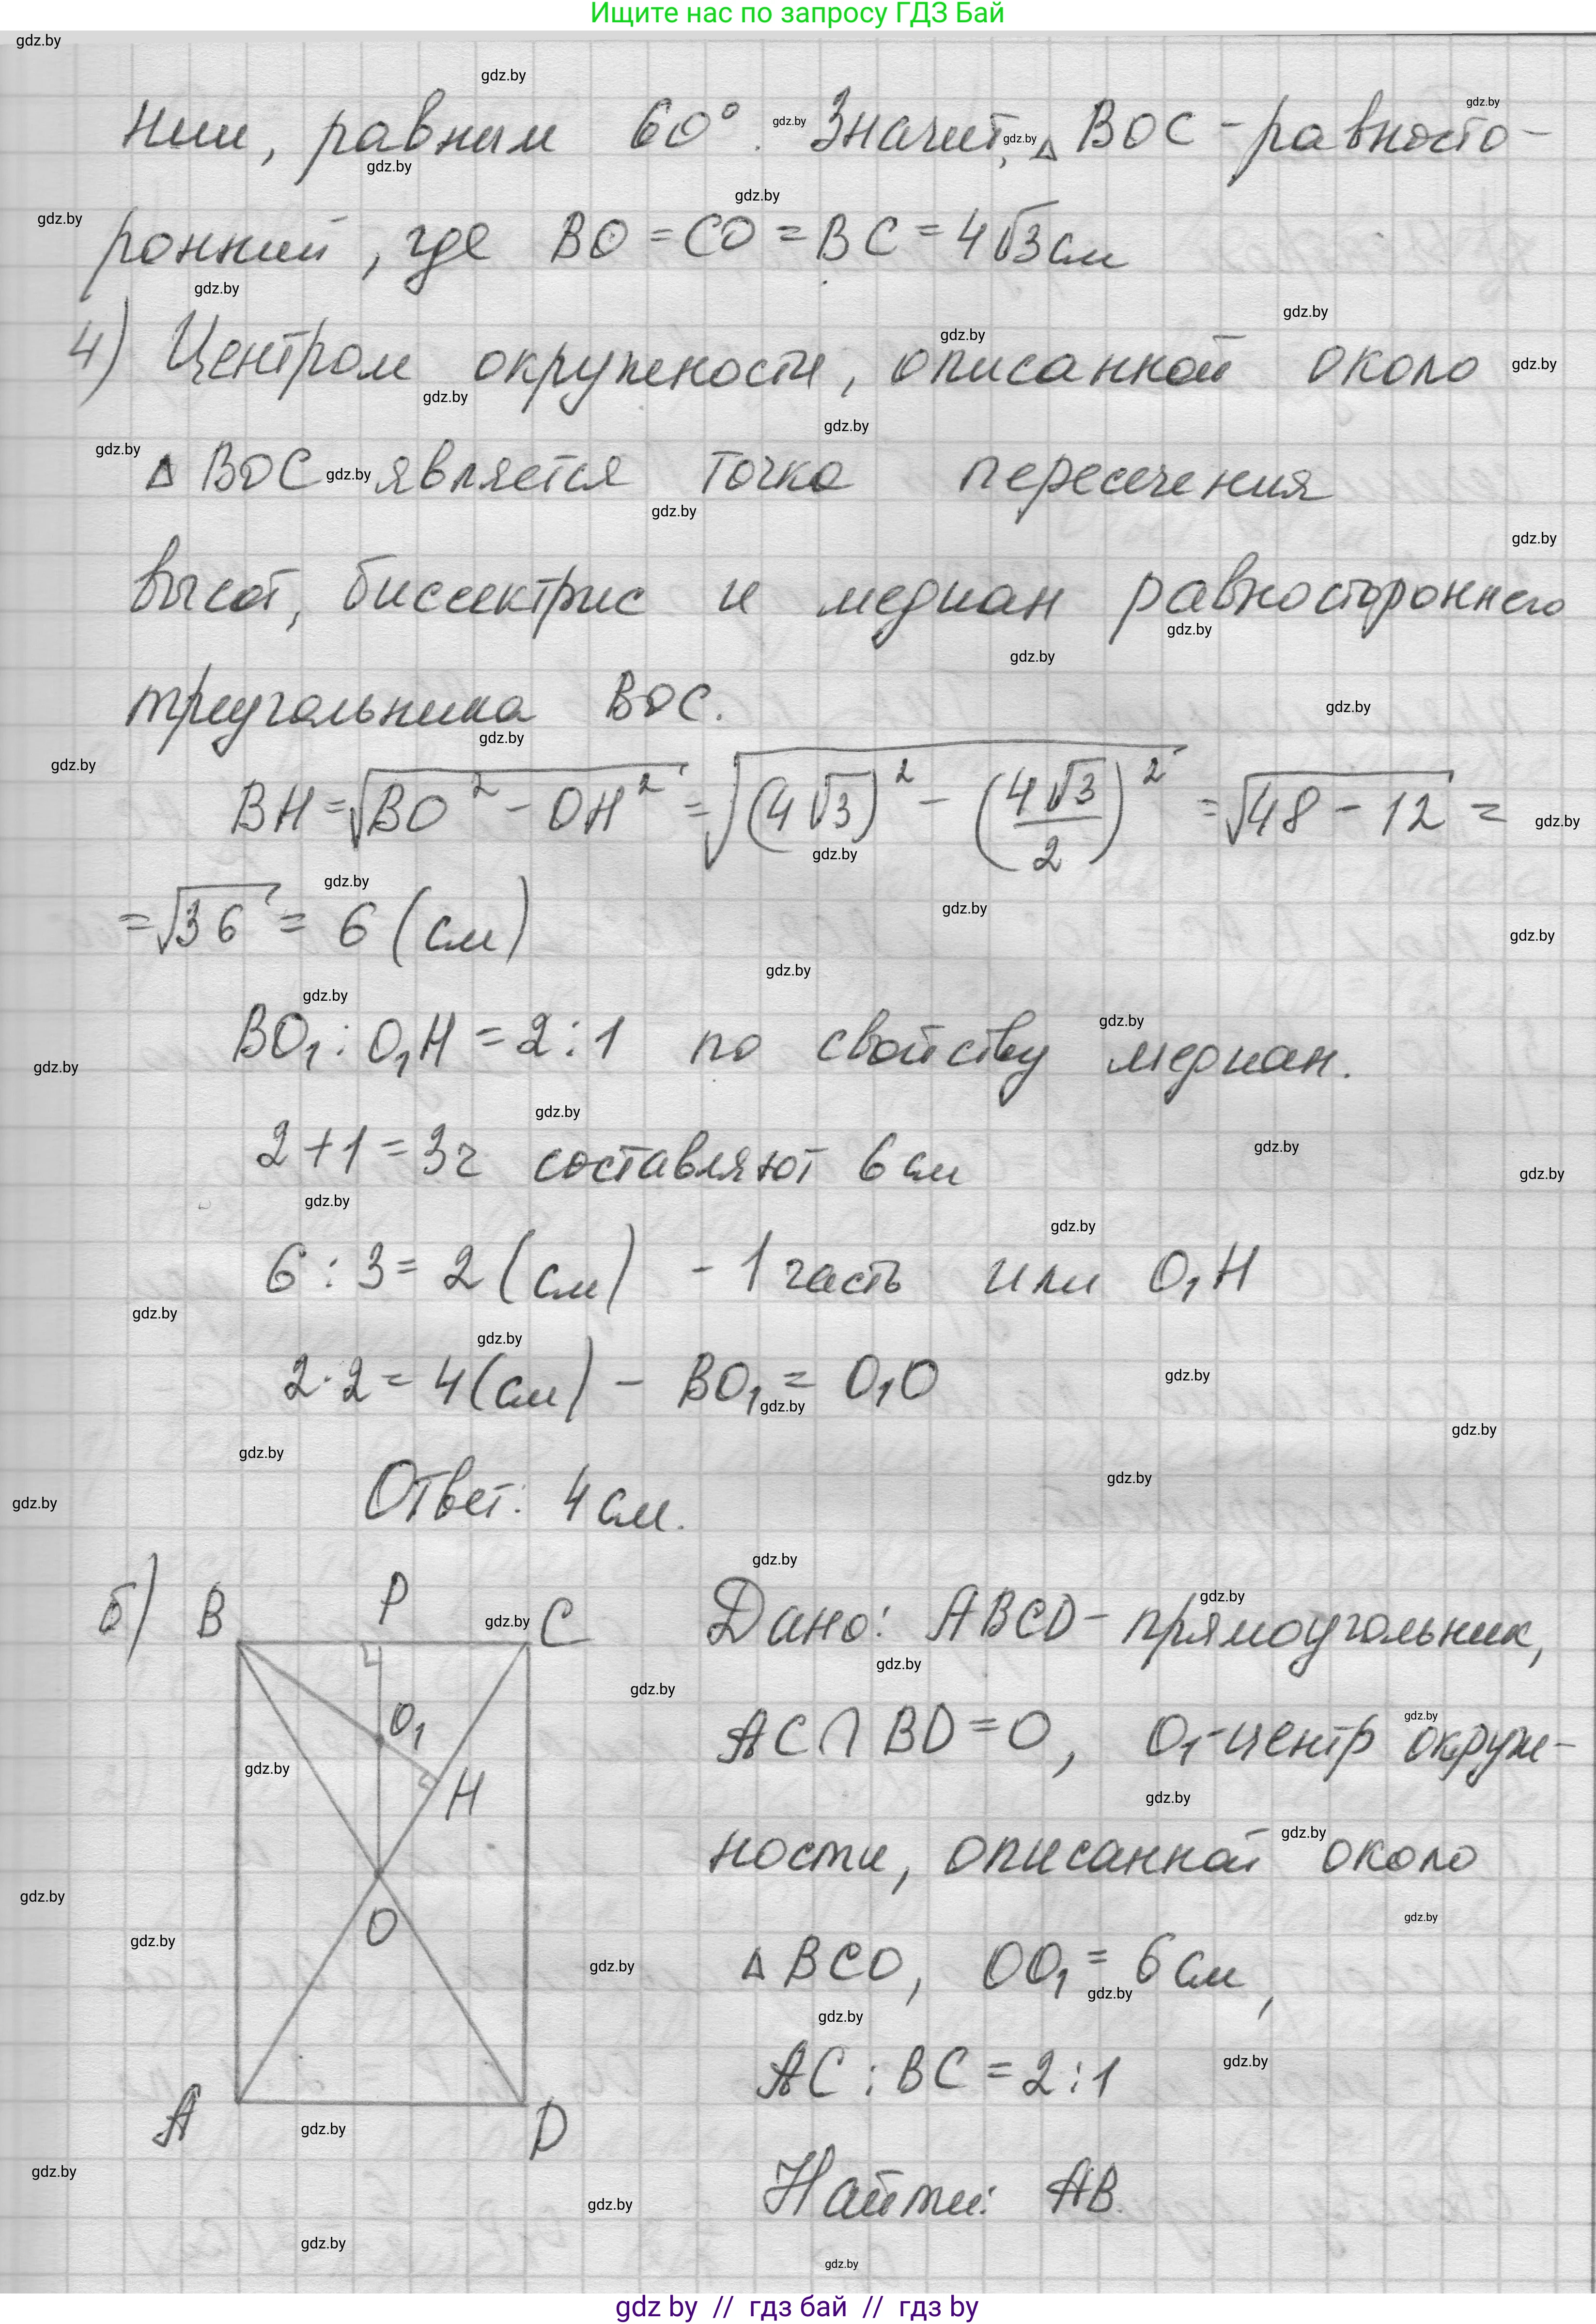 Ищите нас по запросу ГДЗ Бай
нии, равным 60°. Значит, △ BOC - равносто-
ронний, где BO = CO = BC = 4√3 см
4) Центром окружности, описанной около
△ BOC является точка пересечения
высот, биссектрис и медиан равностороннего
треугольника BOC.
BH = √(BO² - OH²) = √((4√3)² - (4√3/2)²) = √(48 - 12) =
= √36 = 6 (см)
BO₁ : O₁H = 2 : 1 по свойству медиан.
2 + 1 = 3ч составляют 6 см
6 : 3 = 2 (см) - 1 часть или O₁H
2 · 2 = 4 (см) - BO₁ = O₁O
Ответ: 4 см.
б) B P C
O₁
H
O
A D
Дано: ABCD - прямоугольник,
AC ∩ BD = O, O₁ - центр окруж-
ности, описанной около
△ BCO, OO₁ = 6 см,
AC : BC = 2 : 1
Найти: AB.
gdz by // гдз бай // гдз by